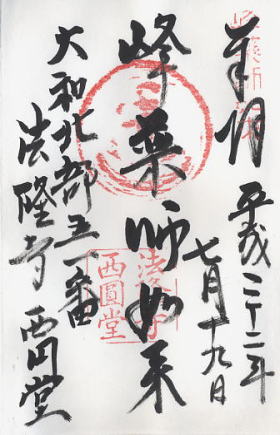 奉拝
平成二十二年
七月十九日
峰薬師如来
大和北部五一番
法隆寺 西円堂
法隆寺
西圓堂